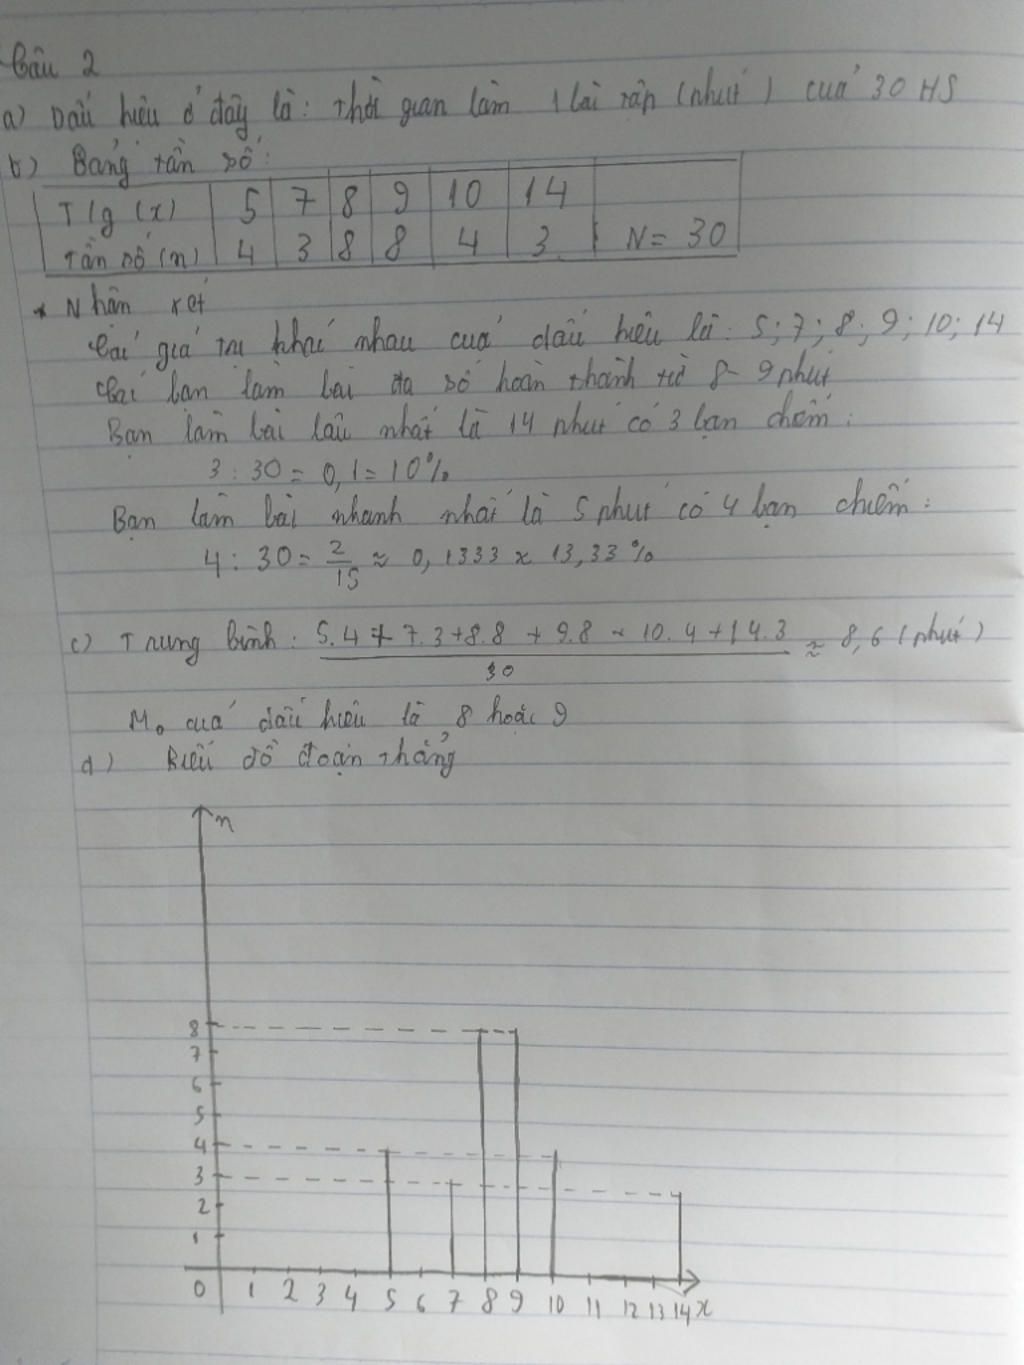 Câu 2
a) Dấu hiệu ở đây là: Thời gian làm 1 bài tập (phút) của 30 HS
b) Bảng tần số:
Tlg (x) 5 7 8 9 10 14
Tần số (n) 4 3 8 8 4 3 N = 30
* Nhận xét
Các giá trị khác nhau của dấu hiệu là: 5; 7; 8; 9; 10; 14
Các bạn làm bài đa số hoàn thành từ 8 - 9 phút
Bạn làm bài lâu nhất là 14 phút có 3 bạn chiếm:
3 : 30 = 0,1 = 10%
Bạn làm bài nhanh nhất là 5 phút có 4 bạn chiếm:
4 : 30 = 2/15 ≈ 0,1333 ≈ 13,33%
c) Trung bình: 5.4 + 7.3 + 8.8 + 9.8 + 10.4 + 14.3 / 30 ≈ 8,6 (phút)
M₀ của dấu hiệu là 8 hoặc 9
d) Biểu đồ đoạn thẳng
n
8
7
6
5
4
3
2
1
0 1 2 3 4 5 6 7 8 9 10 11 12 13 14 x